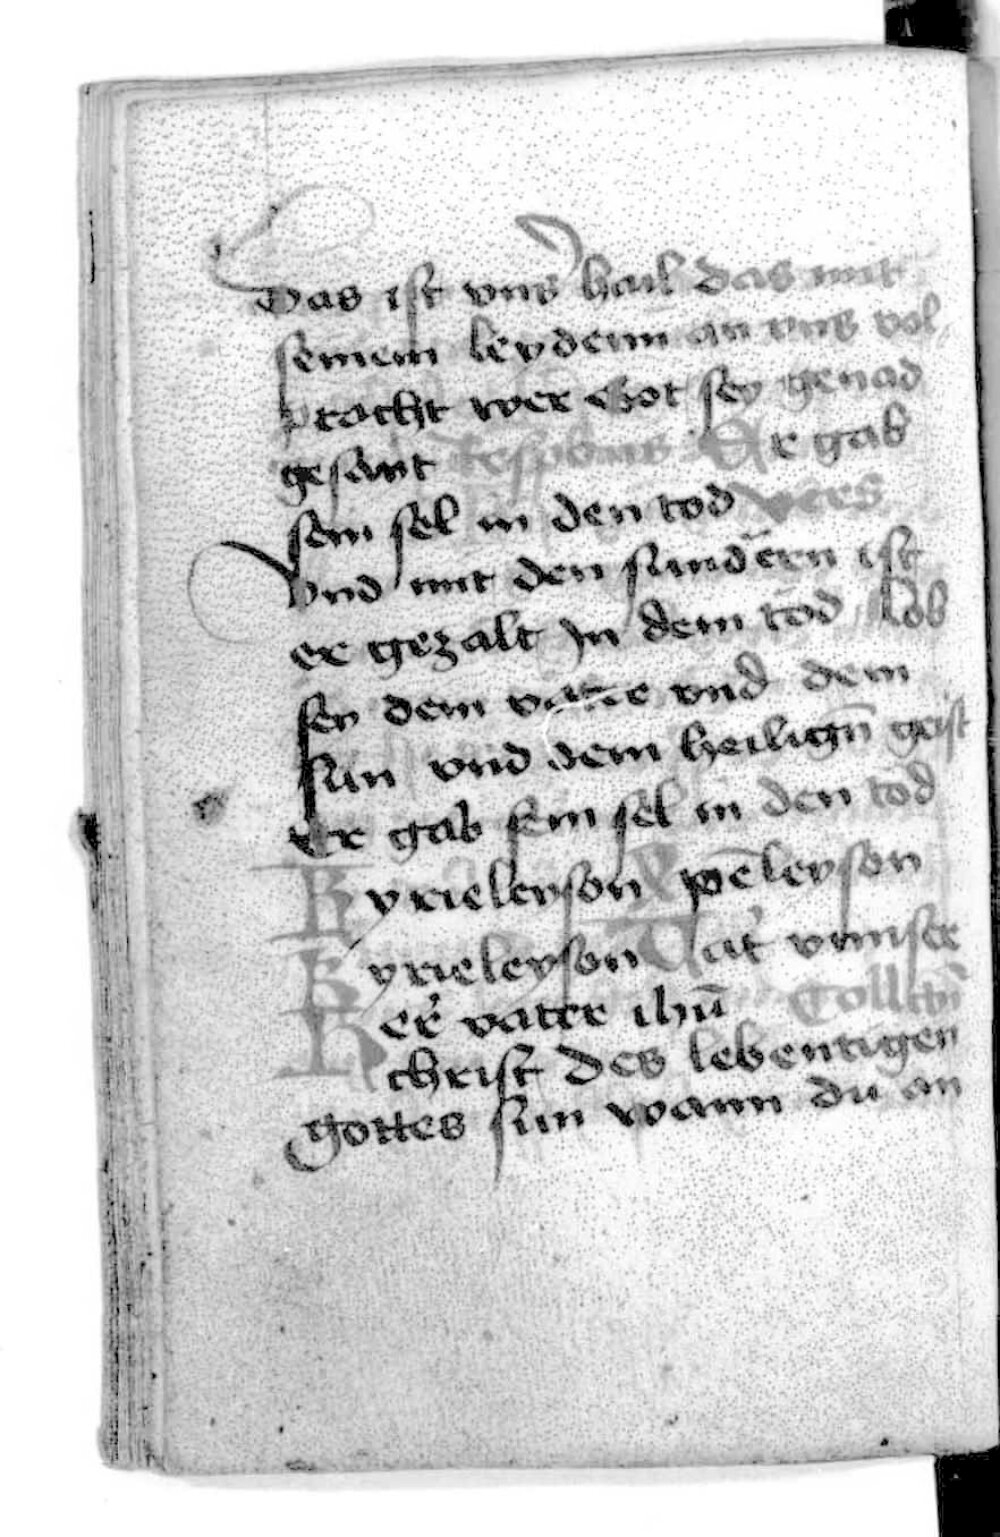 Das ist vns hail das mit
seinem leydenn an vns vol
pracht wer Got sey genad
gesant Respons Er gab
sein sel in den tod vers
Vnd mit den sundern ist
er gezalt Jn dem tod lob
sey dem vater vnd dem
sun vnd dem heilign̄ geist
Er gab sein sel in den tod
Kyrieleyson xp̄eleyson
Kyrieleyson Vater vnnser
Her vater ihū Coll
christ des lebentigen
gottes sun wann du an